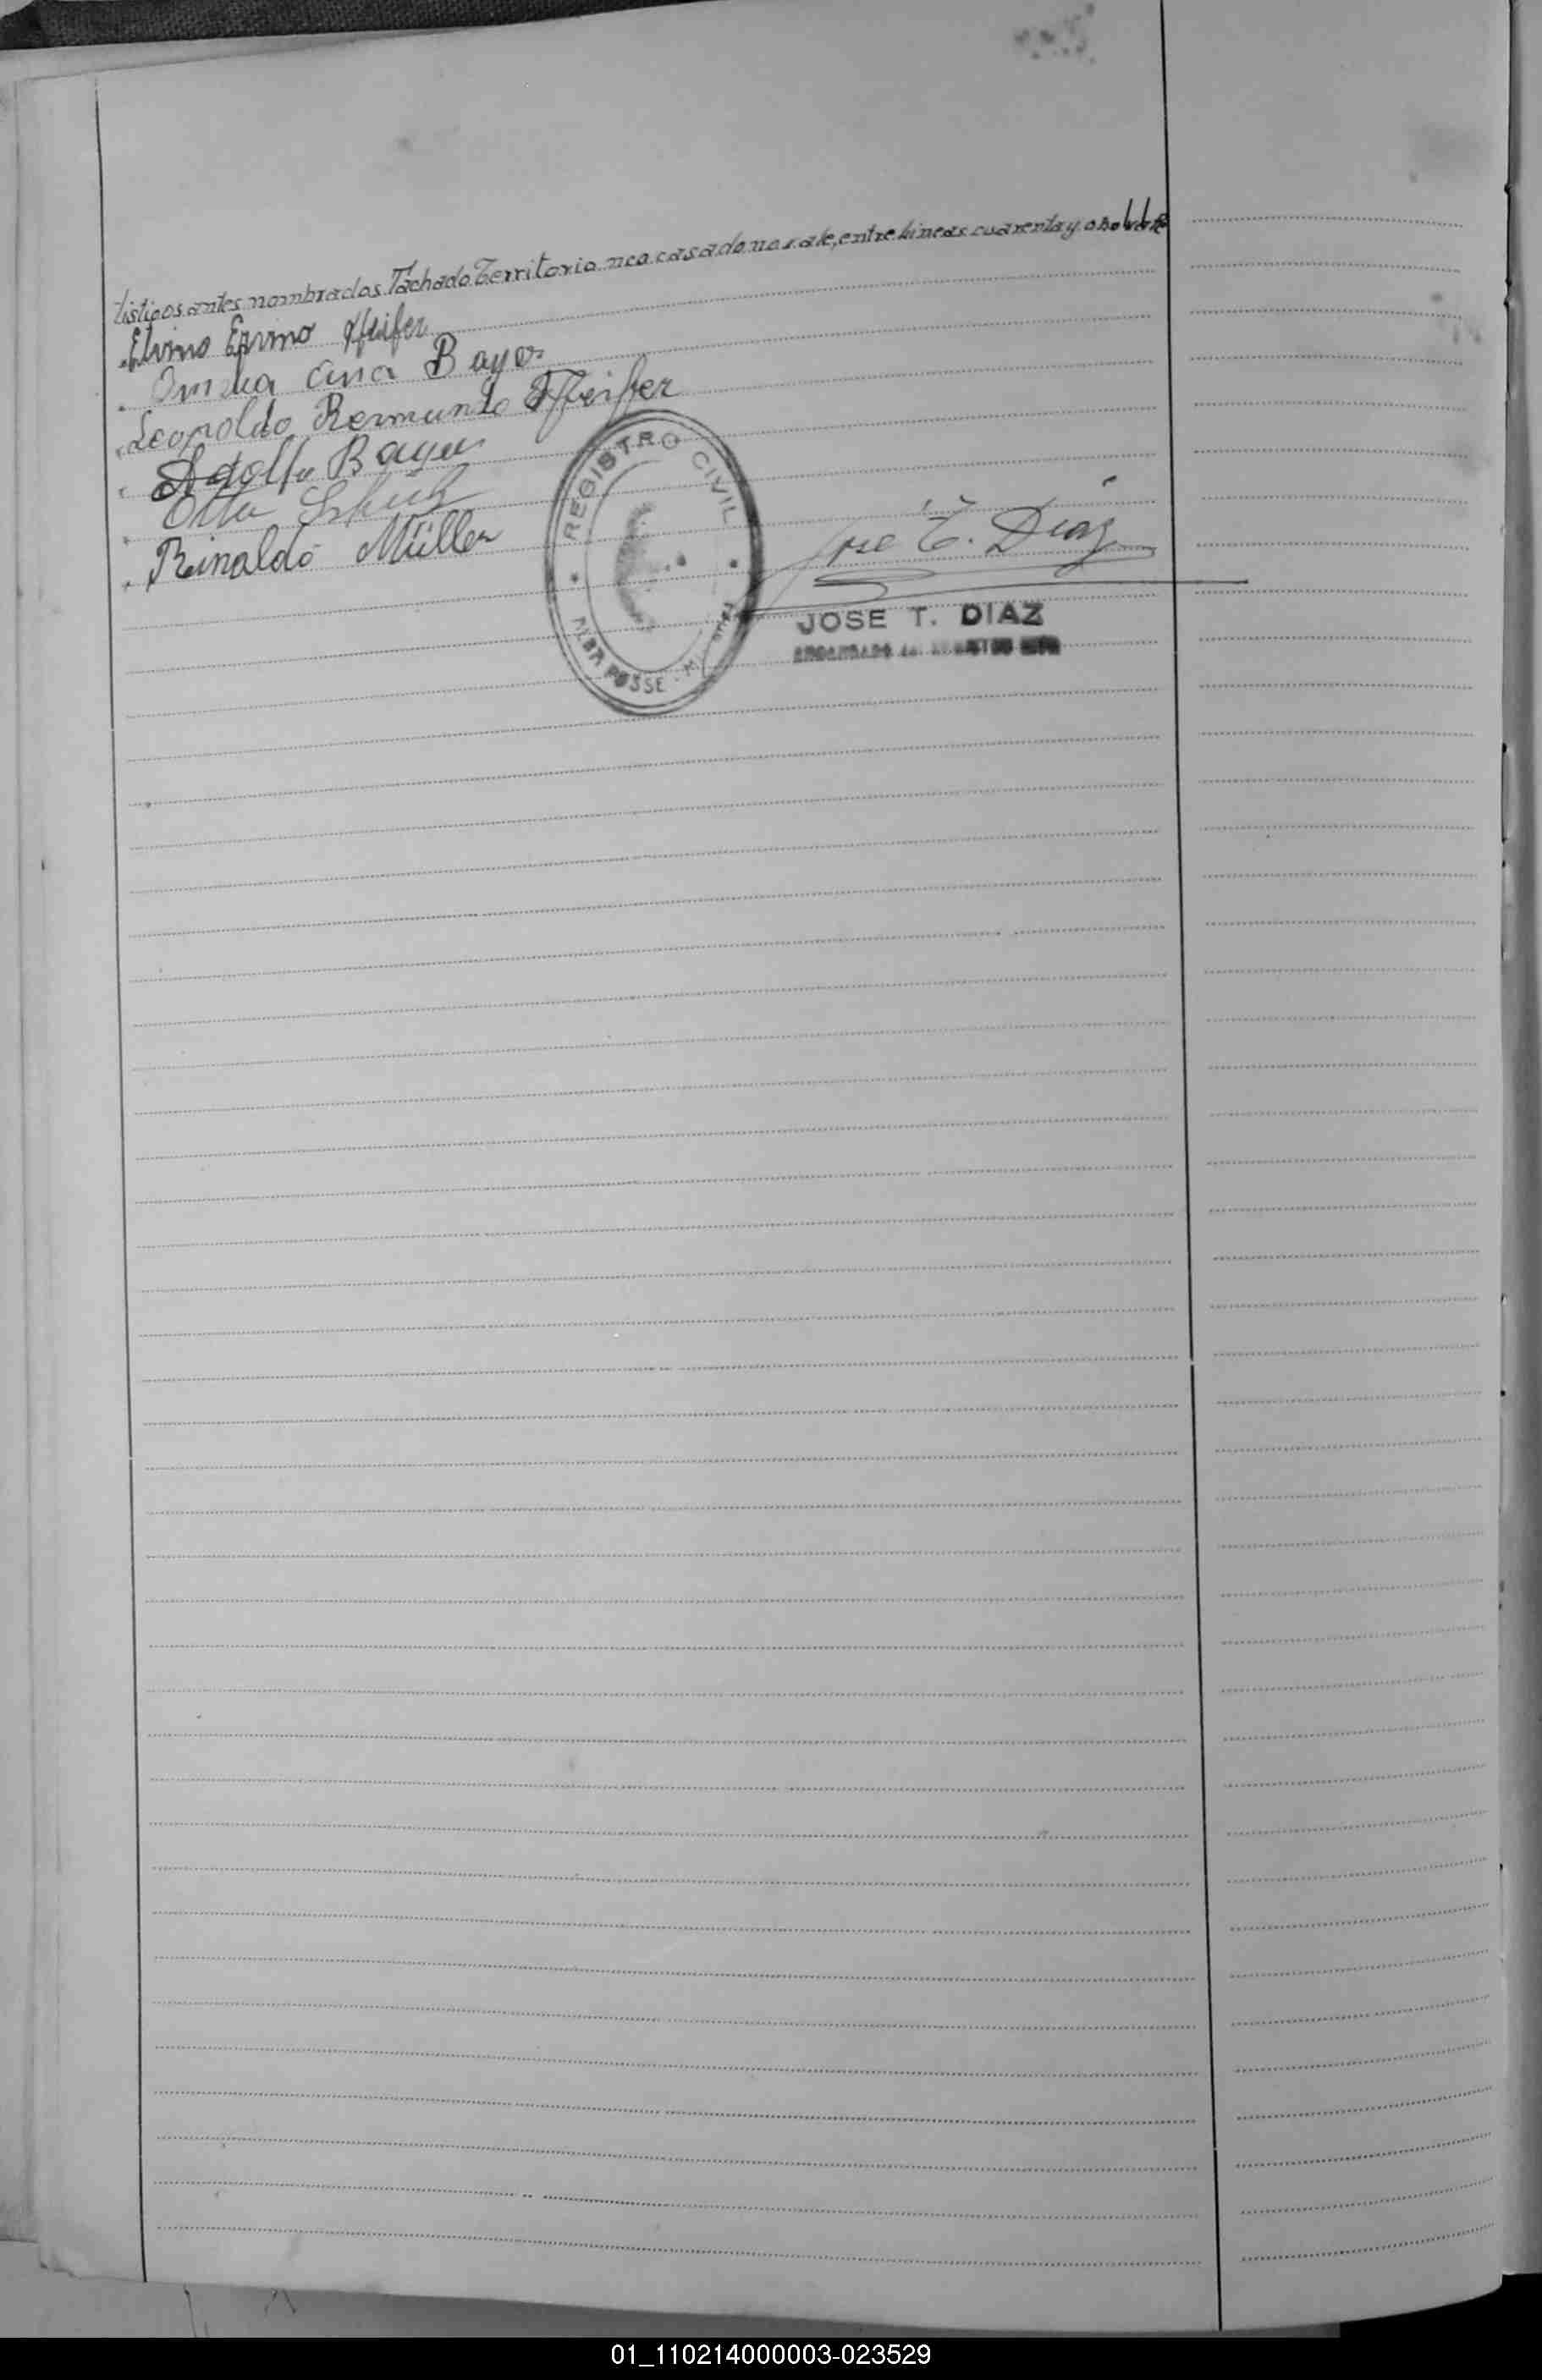 tistigos antes nombrados. Tachado Territorio nco casado no vale, entre lineas cuarenta y ocho vale
Elvino Ervino Pfeifer
Ana Bayer
Leopoldo Reimundo Pfeifer
Adolfo Bayer
Otto
Rinaldo Müller
REGISTRO CIVIL
ALBA POSSE
Jose T. Diaz
JOSE T. DIAZ
ENCARGADO
01_110214000003-023529